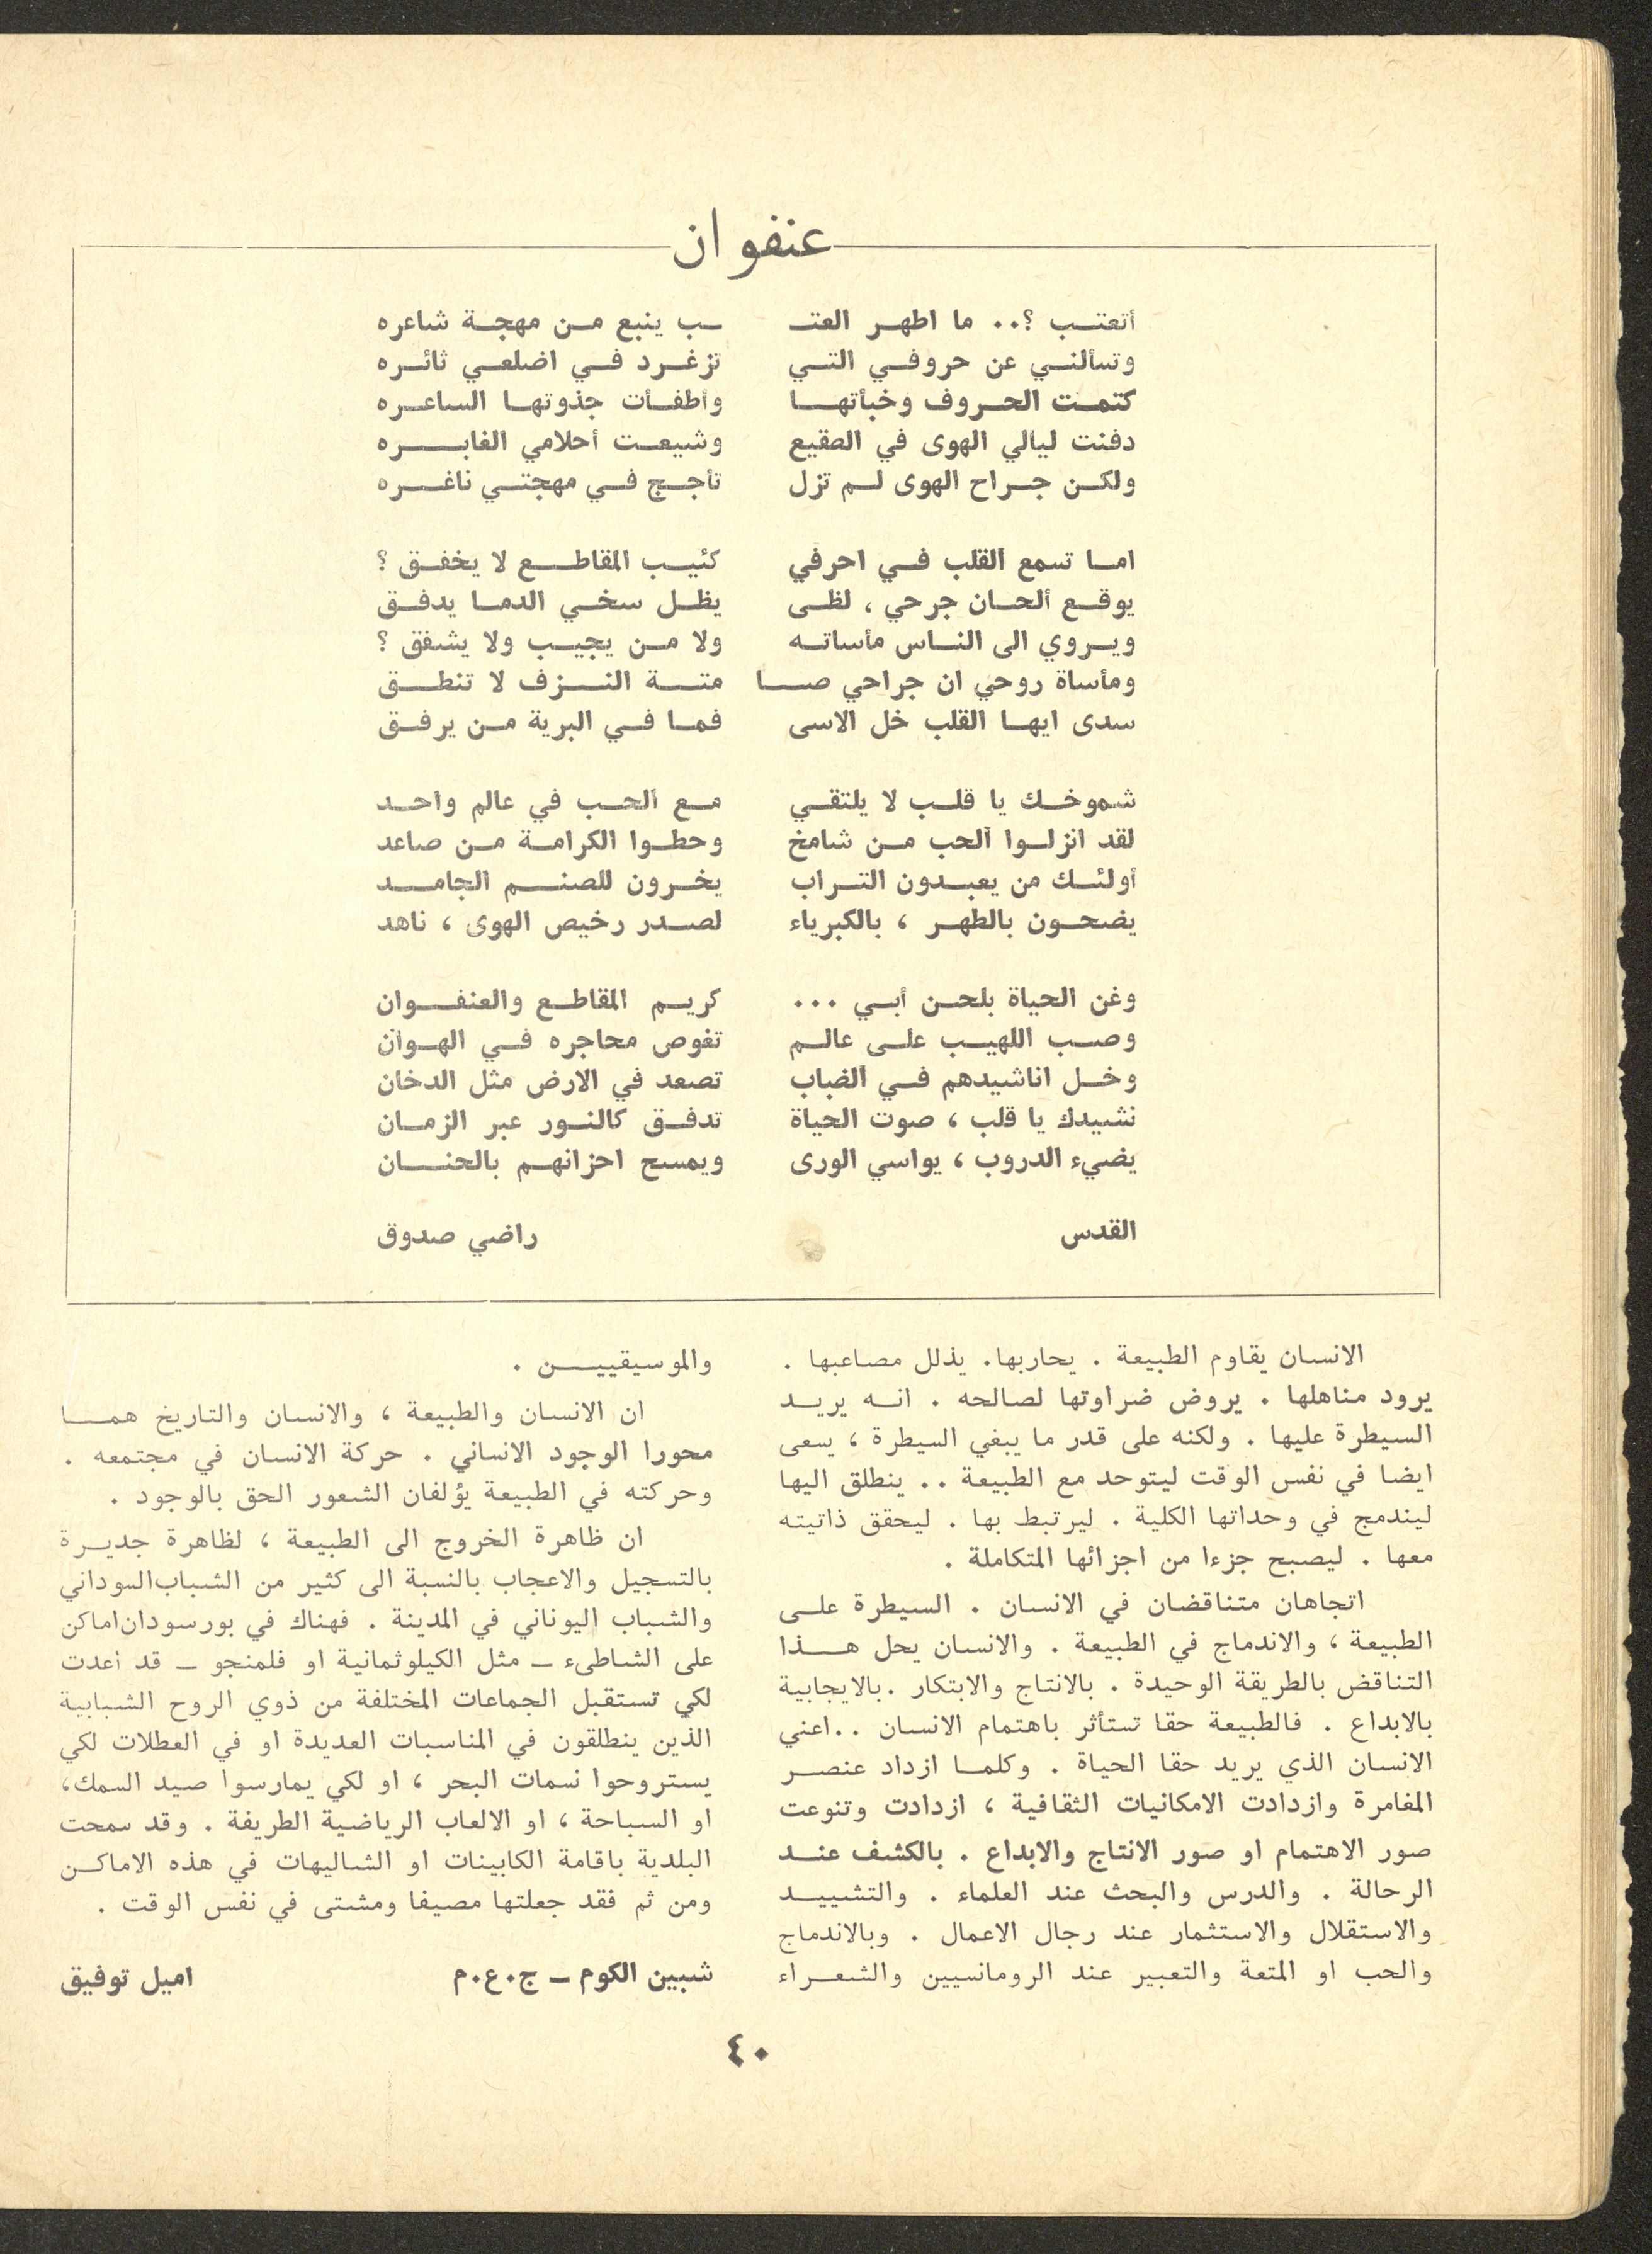 عنفوان
أتعتب ؟.. ما اطهر العتـ ـب ينبع من مهجة شاعره
وتسألني عن حروفي التي تزغرد في اضلعي ثائره
كتمت الحروف وخبأتها وأطفأت جذوتها الساعره
دفنت ليالي الهوى في الصقيع وشيعت أحلامي الغابره
ولكن جراح الهوى لم تزل تأجج في مهجتي ناغره
اما تسمع القلب في احرفي كئيب المقاطع لا يخفق ؟
يوقع ألحان جرحي ، لظى يظل سخي الدما يدفق
ويروي الى الناس مأساته ولا من يجيب ولا يشفق ؟
ومأساة روحي ان جراحي صا متة النزف لا تنطق
سدى ايها القلب خل الاسى فما في البرية من يرفق
شموخك يا قلب لا يلتقي مع الحب في عالم واحد
لقد انزلوا الحب من شامخ وحطوا الكرامة من صاعد
أولئك من يعبدون التراب يخرون للصنم الجامد
يضحون بالطهر ، بالكبرياء لصدر رخيص الهوى ، ناهد
وغن الحياة بلحن أبي ... كريم المقاطع والعنفوان
وصب اللهيب على عالم تغوص محاجره في الهوان
وخل اناشيدهم في الضباب تصعد في الارض مثل الدخان
نشيدك يا قلب ، صوت الحياة تدفق كالنور عبر الزمان
يضيء الدروب ، يواسي الورى ويمسح احزانهم بالحنان
القدس راضي صدوق
الانسان يقاوم الطبيعة . يحاربها. يذلل مصاعبها .
يرود مناهلها . يروض ضراوتها لصالحه . انه يريد
السيطرة عليها . ولكنه على قدر ما يبغي السيطرة ، يسعى
ايضا في نفس الوقت ليتوحد مع الطبيعة .. ينطلق اليها
ليندمج في وحداتها الكلية . ليرتبط بها . ليحقق ذاتيته
معها . ليصبح جزءا من اجزائها المتكاملة .
اتجاهان متناقضان في الانسان . السيطرة على
الطبيعة ، والاندماج في الطبيعة . والانسان يحل هذا
التناقض بالطريقة الوحيدة . بالانتاج والابتكار .بالايجابية
بالابداع . فالطبيعة حقا تستأثر باهتمام الانسان ..اعني
الانسان الذي يريد حقا الحياة . وكلما ازداد عنصر
المغامرة وازدادت الامكانيات الثقافية ، ازدادت وتنوعت
صور الاهتمام او صور الانتاج والابداع . بالكشف عند
الرحالة . والدرس والبحث عند العلماء . والتشييد
والاستقلال والاستثمار عند رجال الاعمال . وبالاندماج
والحب او المتعة والتعبير عند الرومانسيين والشعراء
والموسيقيين .
ان الانسان والطبيعة ، والانسان والتاريخ هما
محورا الوجود الانساني . حركة الانسان في مجتمعه .
وحركته في الطبيعة يؤلفان الشعور الحق بالوجود .
ان ظاهرة الخروج الى الطبيعة ، لظاهرة جديرة
بالتسجيل والاعجاب بالنسبة الى كثير من الشباب السوداني
والشباب اليوناني في المدينة . فهناك في بورسودان اماكن
على الشاطىء ــ مثل الكيلوثمانية او فلمنجو ــ قد أعدت
لكي تستقبل الجماعات المختلفة من ذوي الروح الشبابية
الذين ينطلقون في المناسبات العديدة او في العطلات لكي
يستروحوا نسمات البحر ، او لكي يمارسوا صيد السمك،
او السباحة ، او الالعاب الرياضية الطريفة . وقد سمحت
البلدية باقامة الكابينات او الشاليهات في هذه الاماكن
ومن ثم فقد جعلتها مصيفا ومشتى في نفس الوقت .
شبين الكوم ــ ج.ع.م اميل توفيق
٤٠